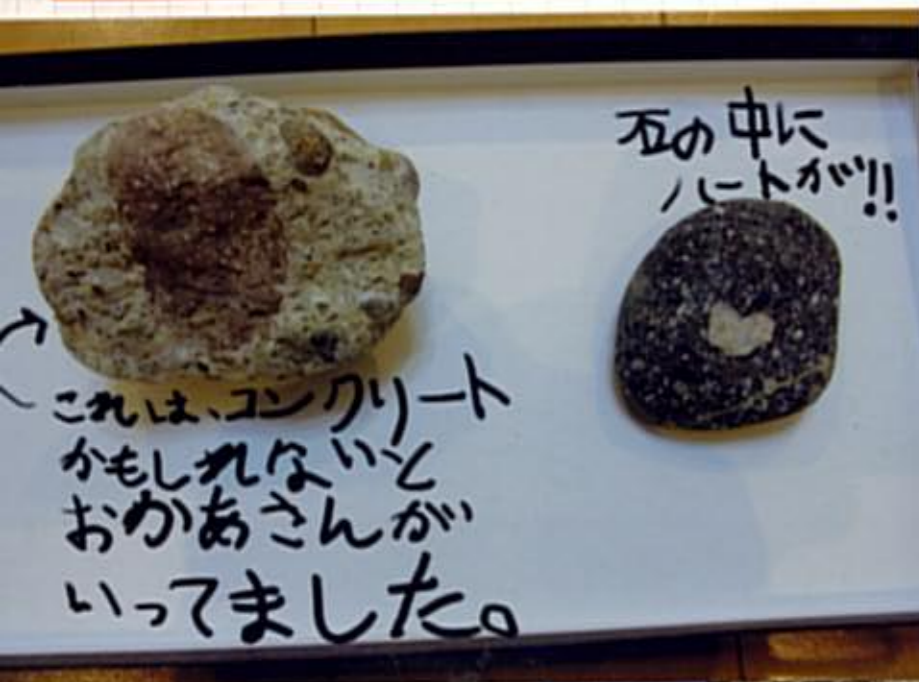 石の中に
ハートが!!
これは、コンクリート
かもしれないと
おかあさんが
いってました。